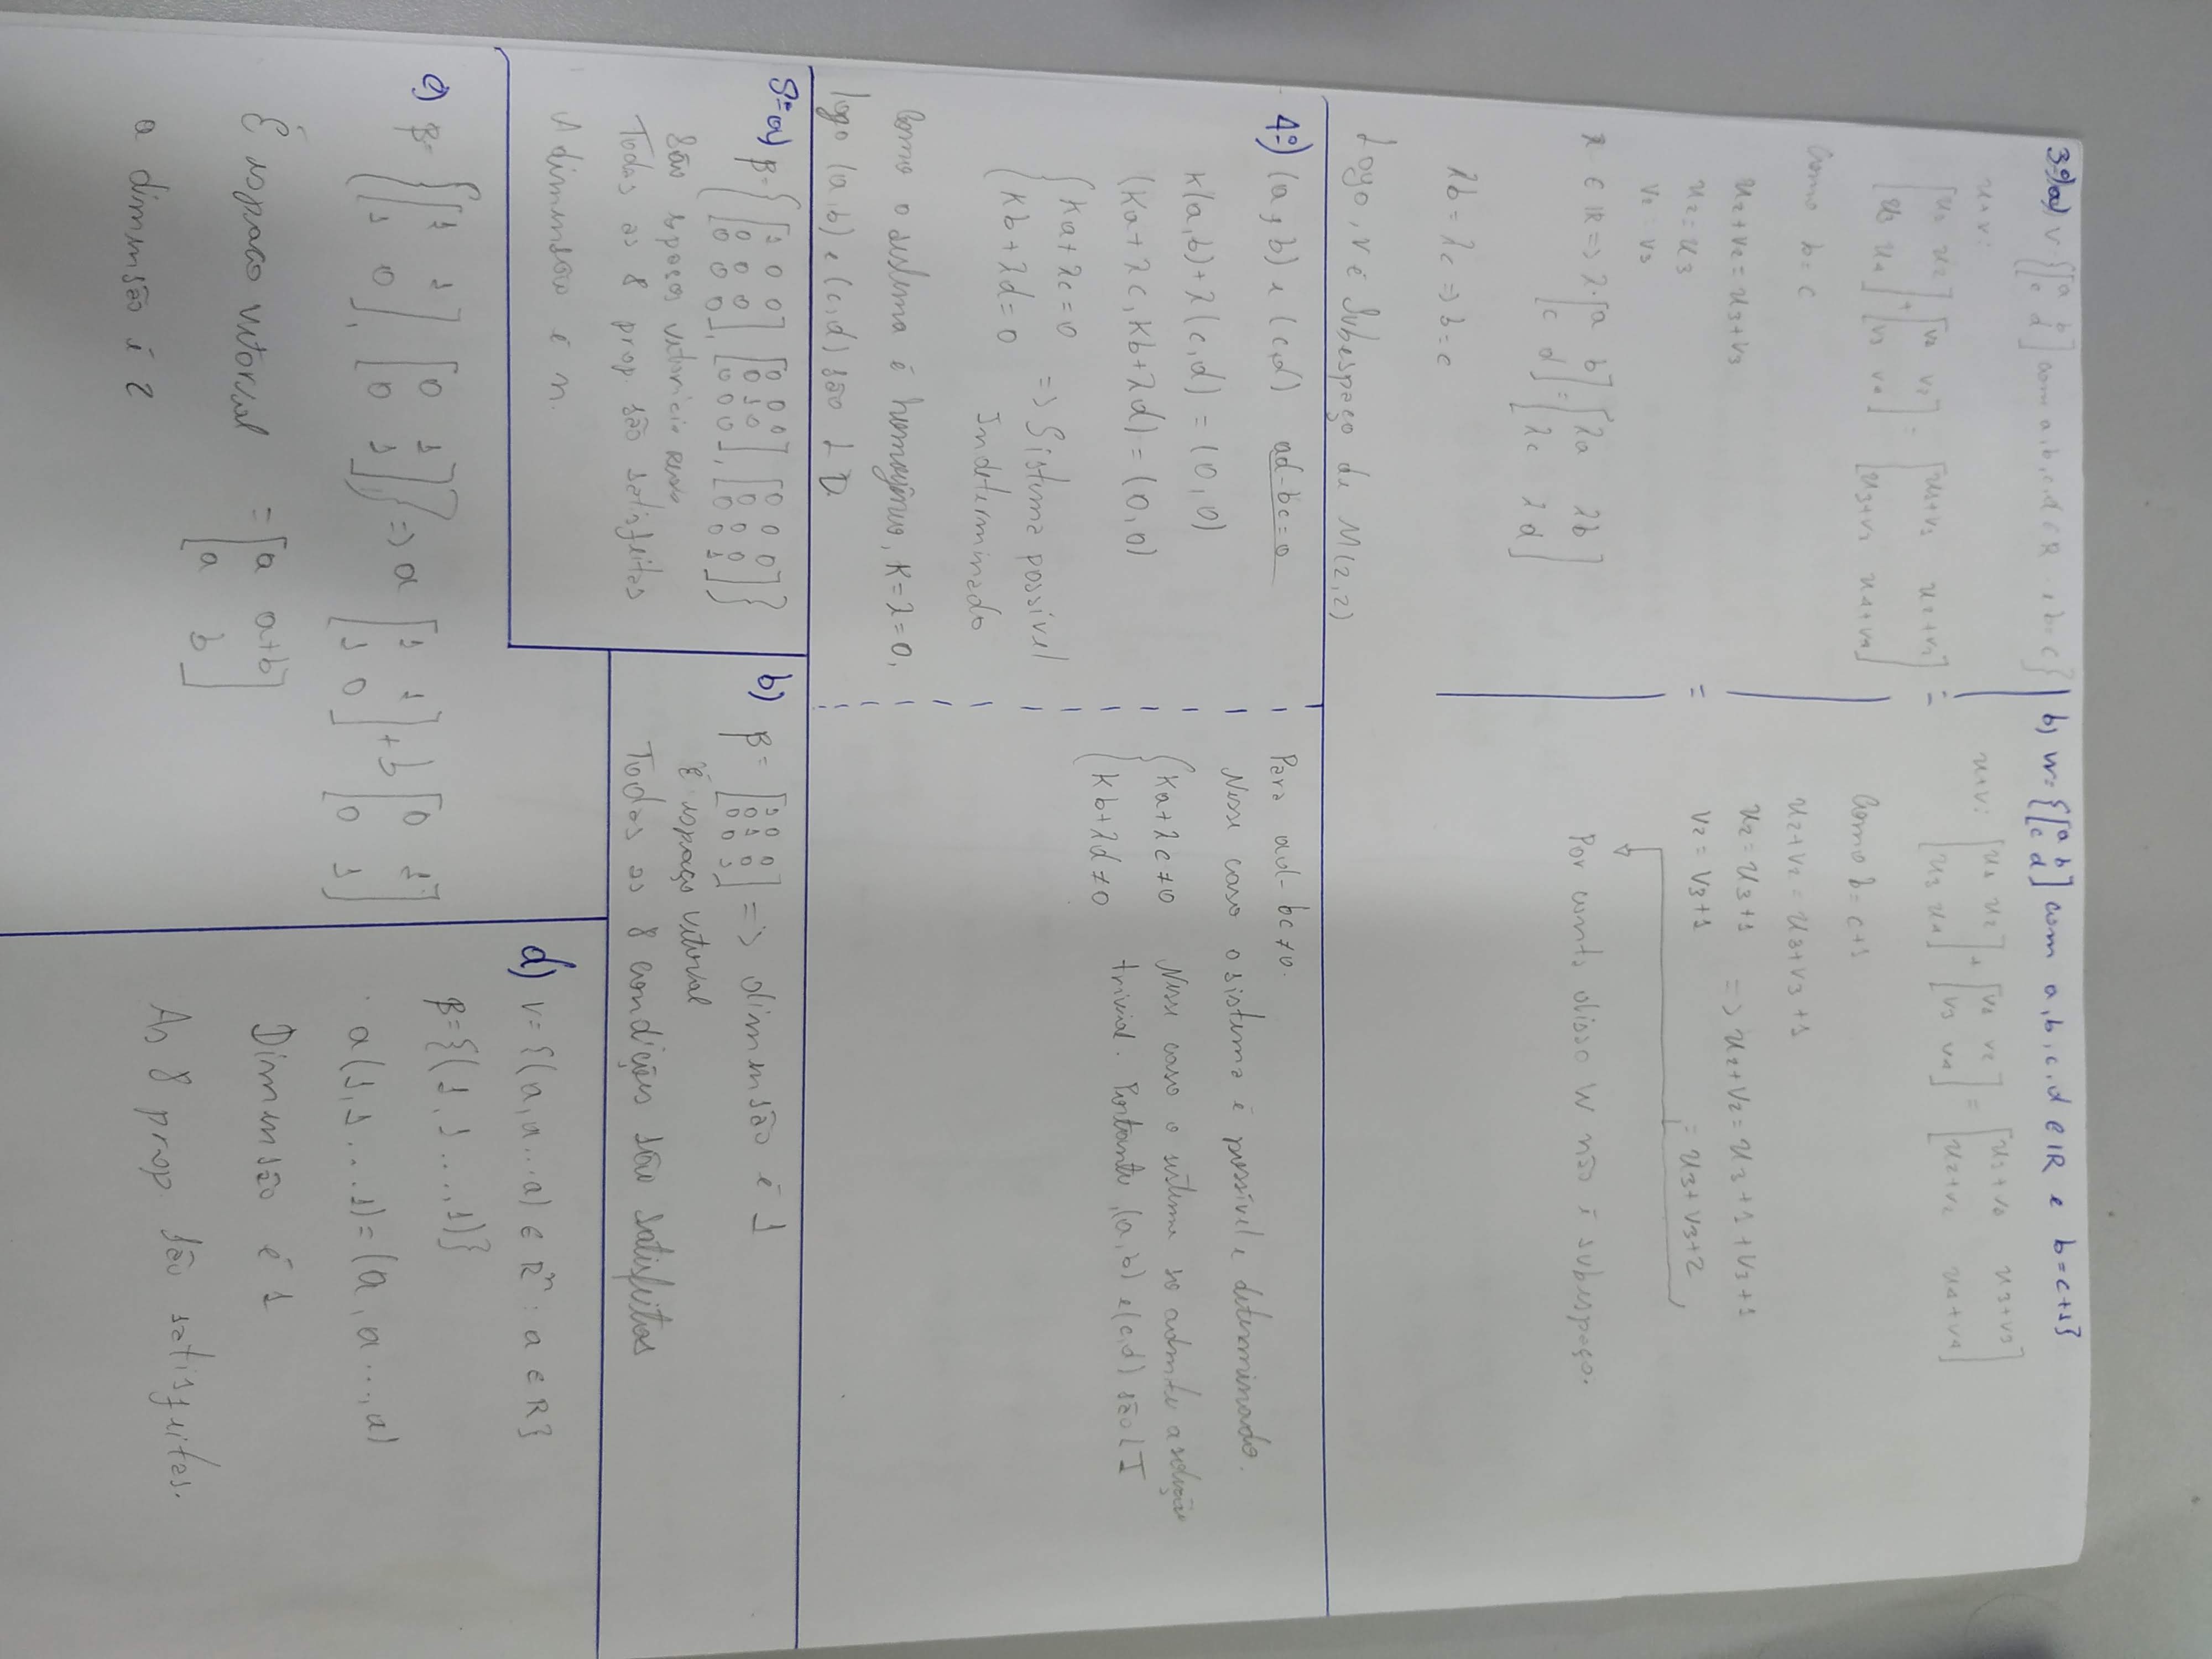 3º) a) V {[a b
c d] com a, b, c, d ∈ R . , b = c}
u+v:
[u1 u2
u3 u4] + [v1 v2
v3 v4] = [u1+v1 u2+v2
u3+v3 u4+v4]
Como b = c
u2+v2 = u3+v3
u2 = u3
v2 = v3
λ ∈ R => λ.[a b
c d] = [λa λb
λc λd]
λb = λc => b = c
Logo, V é Subespaço de M(2,2)
b) W= {[a b
c d] com a, b, c, d ∈ IR e b=c+1}
u+v: [u1 u2
u3 u4] + [v1 v2
v3 v4] =
Como b = c+1
u2+v2 = u3+v3+1
u2 = u3+1 => u2+v2 = u3+1+v3+1
v2 = v3+1 = u3+v3+2
Por conta disso W não é subespaço.
4º) (a, b) e (c,d) ad-bc=0
K(a,b)+λ(c,d) = (0,0)
(Ka+λc, Kb+λd) = (0,0)
{Ka+λc=0
Kb+λd=0 => Sistema possível
Indeterminado
Como o sistema é homogêneo, K=λ=0,
logo (a,b) e (c,d) são LD
Para ad-bc≠0.
Nesse caso o sistema é possível e determinado.
{Ka+λc≠0 Nesse caso o sistema so admite a solução
Kb+λd≠0 trivial. Portanto, (a,b) e (c,d) são LI
a) β= {[1 0 0
0 0 0
0 0 0], [0 0 0
0 1 0
0 0 0], [0 0 0
0 0 0
0 0 1]}
São espaços
Todas as 8 prop. são satisfeitas
A dimensão é n.
b) β = [1 0 0
0 1 0
0 0 1] => dimensão é 1
É espaço vetorial
Todas as 8 condições são satisfeitas
c) β= {[1 1
1 0], [0 1
0 1]} => a [1 1
1 0] + b [0 1
0 1]
É espaço vetorial = [a a+b
a b]
a dimensão é 2
d) V={(a, a...a) ∈ Rⁿ : a ∈ R}
β={(1, 1 ...,1)}
. a(1,1...1)=(a, a...,a)
Dimensão é 1
As 8 prop. são satisfeitas.